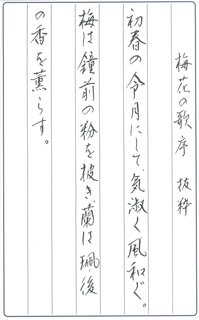 梅花の歌序 抜粋
初春の令月にして、気淑く風和ぐ。
梅は鐘前の粉を披き、蘭は珮後
の香を薫らす。